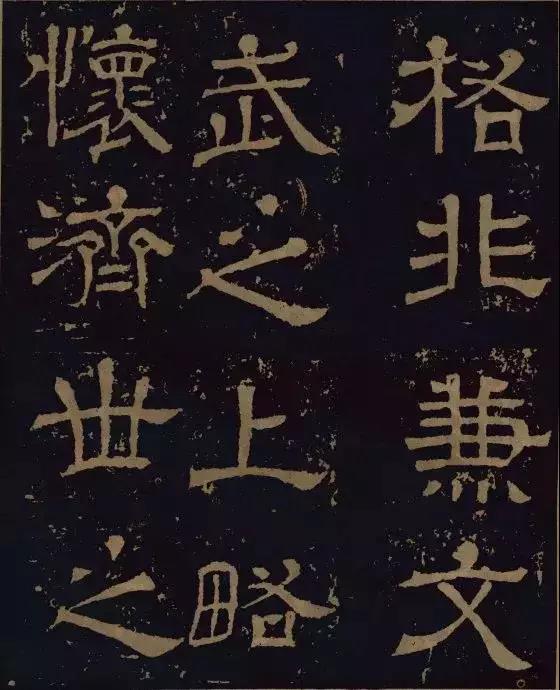 格非兼文
武之上略
懷濟世之